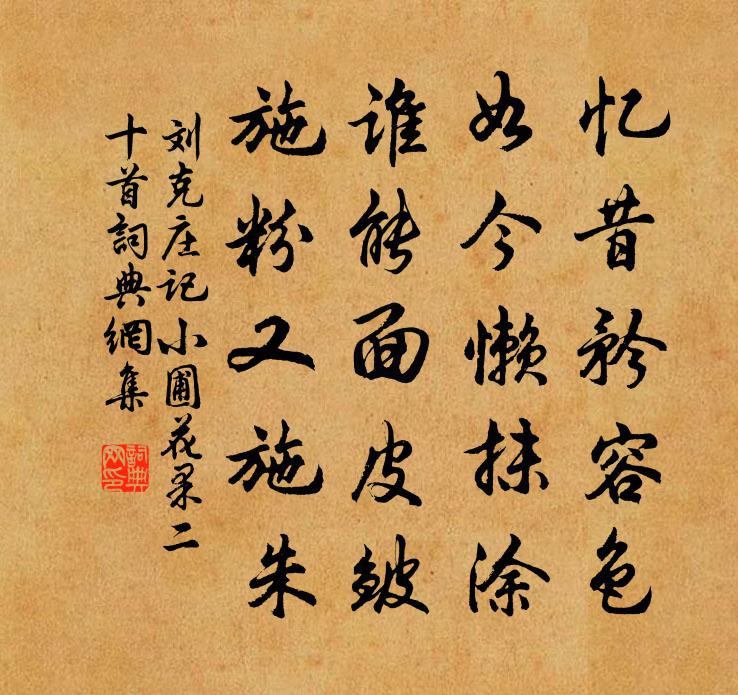 忆昔矜容色
如今懒抹涂
谁能面皮皴
施粉又施朱
刘克庄记小圃花果二
十首詞典網集
詞典
网印